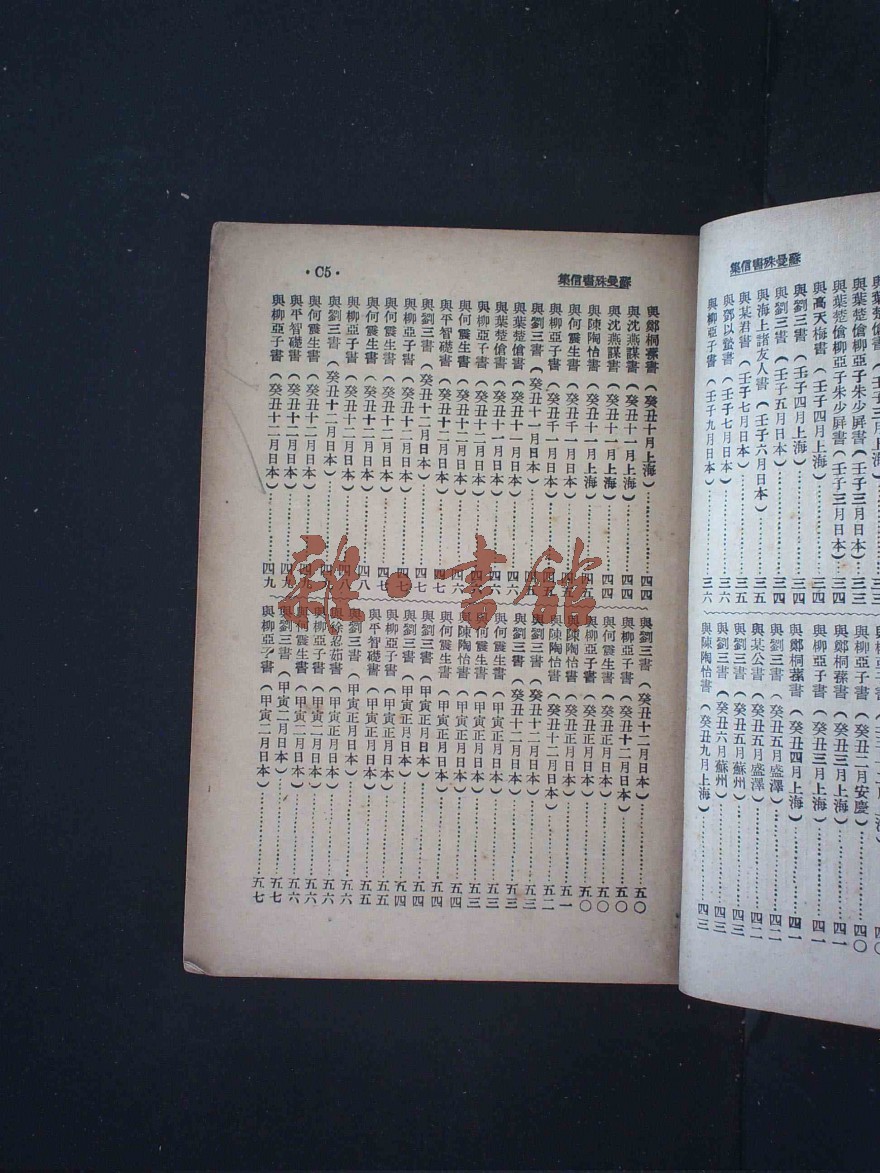 蘇曼殊書信集
與葉楚傖柳亞子朱少屏書(壬子三月日本)………三三
與葉楚傖柳亞子朱少屏書(壬子三月日本)………三四
與高天梅書(壬子四月上海)………三四
與劉三書(壬子四月上海)………三四
與劉三書(壬子五月日本)………三四
與海上諸友人書(壬子六月日本)………三五
與某君書(壬子七月日本)………三五
與鄧以蟄書(壬子七月日本)………三六
與柳亞子書(壬子九月日本)………三六
與柳亞子書(癸丑二月安慶)………四〇
與鄭桐蓀書(癸丑三月上海)………四一
與柳亞子書(癸丑三月上海)………四一
與鄭桐蓀書(癸丑四月上海)………四一
與劉三書(癸丑五月盛澤)………四二
與某公書(癸丑五月盛澤)………四二
與劉三書(癸丑五月蘇州)………四三
與劉三書(癸丑六月蘇州)………四三
與陳陶怡書(癸丑九月上海)………四三
蘇曼殊書信集
·C5·
與鄭桐蓀書(癸丑十月上海)………四四
與沈燕謀書(癸丑十一月上海)………四四
與沈燕謀書(癸丑十一月上海)………四四
與陳陶怡書(癸丑十一月上海)………四五
與何震生書(癸丑十一月日本)………四五
與柳亞子書(癸丑十一月日本)………四五
與劉三書(癸丑十一月日本)………四五
與葉楚傖書(癸丑十一月日本)………四六
與葉楚傖書(癸丑十一月日本)………四六
與柳亞子書(癸丑十二月日本)………四六
與何震生書(癸丑十二月日本)………四七
與平智礎書(癸丑十二月日本)………四七
與劉三書(癸丑十二月日本)………四七
與柳亞子書(癸丑十二月日本)………四七
與何震生書(癸丑十二月日本)………四七
與何震生書(癸丑十二月日本)………四八
與柳亞子書(癸丑十二月日本)………四八
與劉三書(癸丑十二月日本)………四九
與何震生書(癸丑十二月日本)………四九
與平智礎書(癸丑十二月日本)………四九
與柳亞子書(癸丑十二月日本)………四九
與劉三書(癸丑十二月日本)………五〇
與柳亞子書(癸丑十二月日本)………五〇
與何震生書(癸丑正月日本)………五〇
與柳亞子書(癸丑正月日本)………五〇
與陳陶怡書(癸丑正月日本)………五一
與陳陶怡書(癸丑十二月日本)………五二
與劉三書(癸丑十二月日本)………五三
與劉三書(癸丑十二月日本)………五三
與何震生書(甲寅正月日本)………五三
與何震生書(甲寅正月日本)………五三
與陳陶怡書(甲寅正月日本)………五四
與何震生書(甲寅正月日本)………五四
與劉三書(甲寅正月日本)………五四
與劉三書(甲寅正月日本)………五四
與柳亞子書(甲寅正月日本)………五五
與平智礎書(甲寅正月日本)………五五
與劉三書(甲寅正月日本)………五六
與徐忍茹書(甲寅二月日本)………五六
與柳亞子書(甲寅二月日本)………五六
與何震生書(甲寅二月日本)………五六
與劉三書(甲寅二月日本)………五七
與柳亞子書(甲寅二月日本)………五七
雜·書館